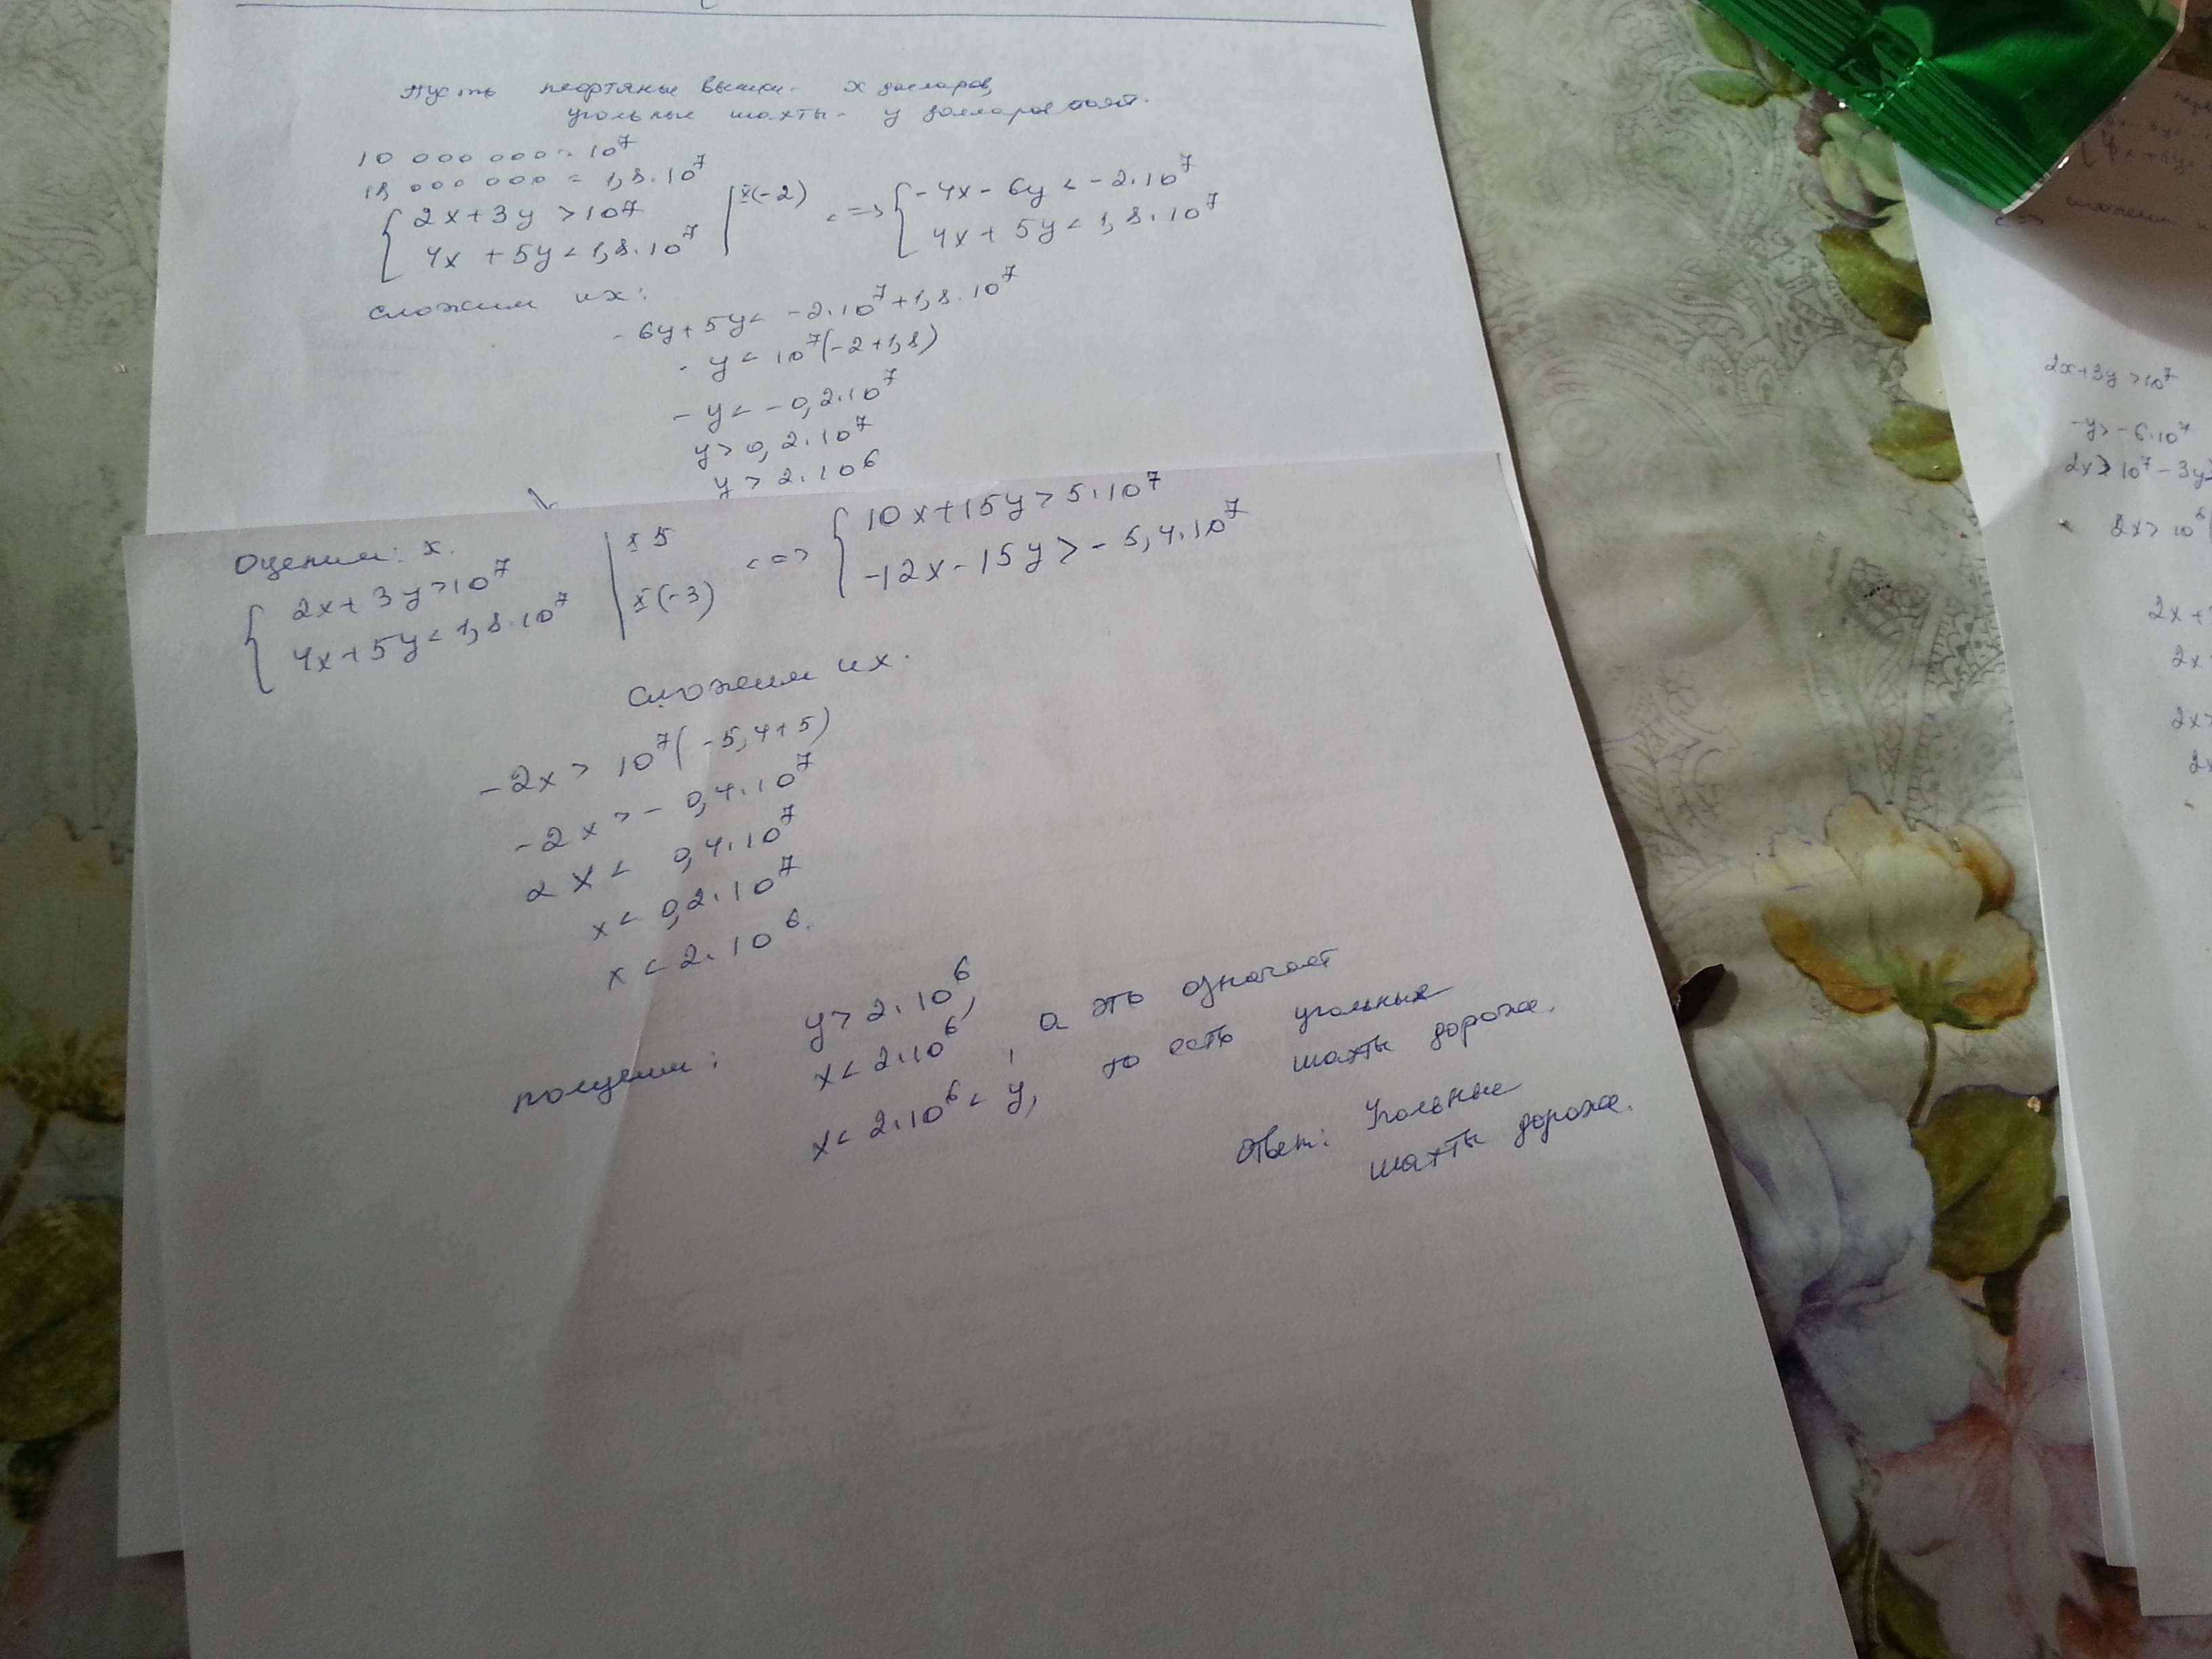 Пусть нефтяные вышки - x долларов,
угольные шахты - y долларов стоят.
10 000 000 = 10⁷
18 000 000 = 1,8·10⁷
{ 2x+3y>10⁷ | x(-2) <=> { -4x-6y<-2·10⁷
4x+5y<1,8·10⁷ 4x+5y<1,8·10⁷
сложим их:
-6y+5y< -2·10⁷+1,8·10⁷
-y<10⁷(-2+1,8)
-y<-0,2·10⁷
y>0,2·10⁷
y>2·10⁶
Оценим: x.
{ 2x+3y>10⁷ | x 5 <=> { 10x+15y>5·10⁷
4x+5y<1,8·10⁷ | x(-3) -12x-15y>-5,4·10⁷
Сложим их.
-2x> 10⁷(-5,4+5)
-2x>-0,4·10⁷
2x< 0,4·10⁷
x<0,2·10⁷
x<2·10⁶.
получим: y>2·10⁶,
x<2·10⁶, а это означает
x<2·10⁶<y, то есть угольные
шахты дороже.
Ответ: Угольные
шахты дороже.
2x+3y>10⁷
-y>-6·10⁷
2x>10⁷-3y
2x>10⁶
2x+
2x
2x>
2x